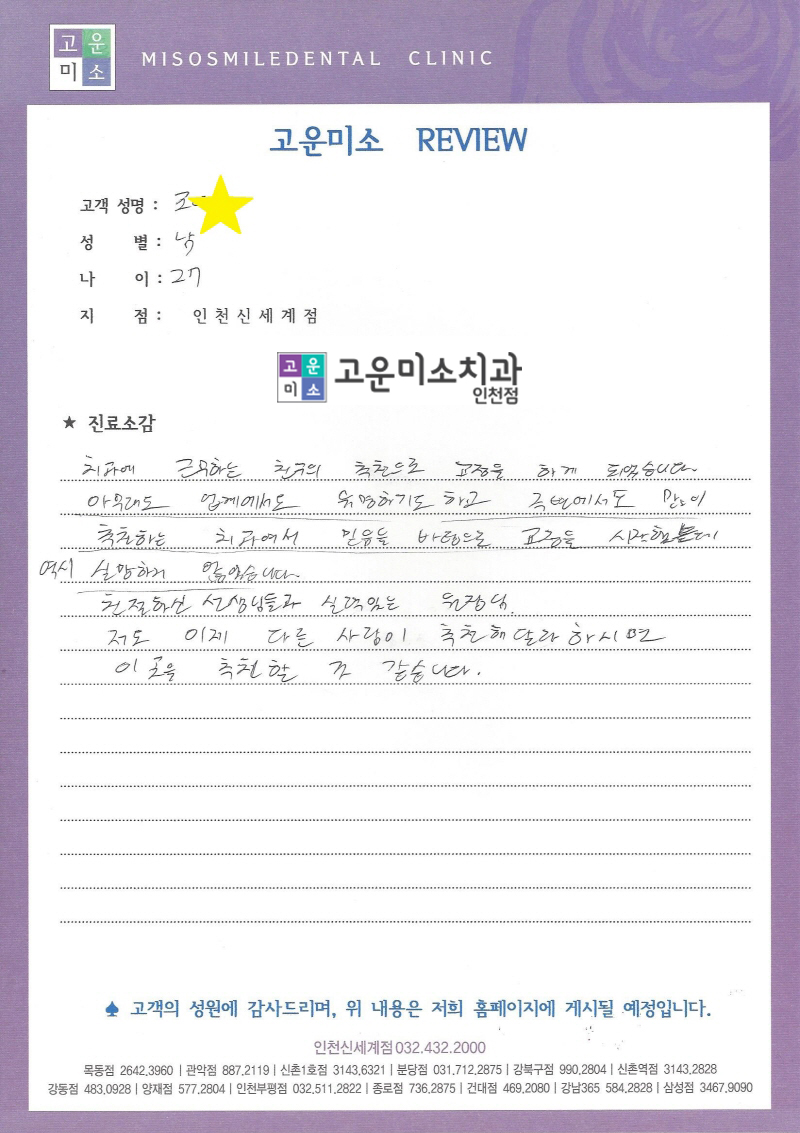 고운
미소
MISOSMILEDENTAL CLINIC
고운미소 REVIEW
고객 성명 :
성 별 : 남
나 이 : 27
지 점 : 인천신세계점
고운
미소
고운미소치과
인천점
★ 진료소감
치과에 근무하는 친구의 추천으로 교정을 하게 되었습니다.
아무래도 업계에서도 유명하기도 하고 주변에서도 많이
추천하는 치과여서 믿음을 바탕으로 교정을 시작했는데
역시 실망하지 않았습니다.
친절하신 선생님들과 실력있는 원장님.
저도 이제 다른 사람이 추천해달라 하시면
이 곳을 추천할 것 같습니다.
♠ 고객의 성원에 감사드리며, 위 내용은 저희 홈페이지에 게시될 예정입니다.
인천신세계점 032.432.2000
목동점 2642.3960 | 관악점 887.2119 | 신촌1호점 3143.6321 | 분당점 031.712.2875 | 강북구점 990.2804 | 신촌역점 3143.2828
강동점 483.0928 | 양재점 577.2804 | 인천부평점 032.511.2822 | 종로점 736.2875 | 건대점 469.2080 | 강남365 584.2828 | 삼성점 3467.9090